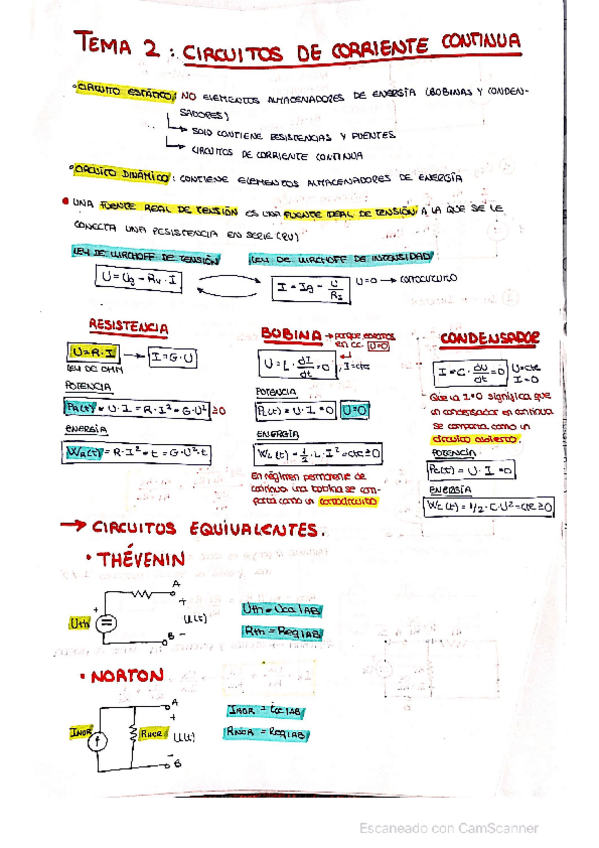 TEMA 2: CIRCUITOS DE CORRIENTE CONTINUA
• CIRCUITO ESTÁTICO: NO ELEMENTOS ALMACENADORES DE ENERGÍA (BOBINAS Y CONDEN-
SADORES)
↳ SOLO CONTIENE RESISTENCIAS Y FUENTES
↳ CIRCUITOS DE CORRIENTE CONTINUA
• CIRCUITO DINÁMICO: CONTIENE ELEMENTOS ALMACENADORES DE ENERGÍA
• UNA FUENTE REAL DE TENSIÓN ES UNA FUENTE IDEAL DE TENSIÓN A LA QUE SE LE
CONECTA UNA RESISTENCIA EN SERIE (RV)
LEY DE KIRCHOFF DE TENSIÓN LEY DE KIRCHOFF DE INTENSIDAD
U = Ug - Rv · I I = Ig - U/RI U=0 → CORTOCIRCUITO
RESISTENCIA
U = R · I → I = G · U
LEY DE OHM
POTENCIA
PR(t) = U · I = R · I² = G · U² ≥ 0
ENERGÍA
WR(t) = R · I² · t = G · U² · t
BOBINA → porque estamos
en CC. U=0
U = L · dI/dt = 0, I = cte
POTENCIA
PL(t) = U · I = 0 U=0
ENERGÍA
WL(t) = 1/2 · L · I² = cte ≥ 0
En régimen permanente de
continua una bobina se com-
porta como un cortocircuito
CONDENSADOR
I = C · dU/dt = 0 U=cte
I=0
- Que la I=0 significa que
un condensador en continua
se comporta como un
circuito abierto.
POTENCIA
Pc(t) = U · I = 0
ENERGÍA
Wc(t) = 1/2 · C · U² = cte ≥ 0
→ CIRCUITOS EQUIVALENTES.
• THÉVENIN
A
+
+
Uth
U(t)
B -
Uth = Uca|AB
Rth = Req|AB
• NORTON
A
+
INOR
RNOR
U(t)
-
B
INOR = icc|AB
RNOR = Req|AB
Escaneado con CamScanner